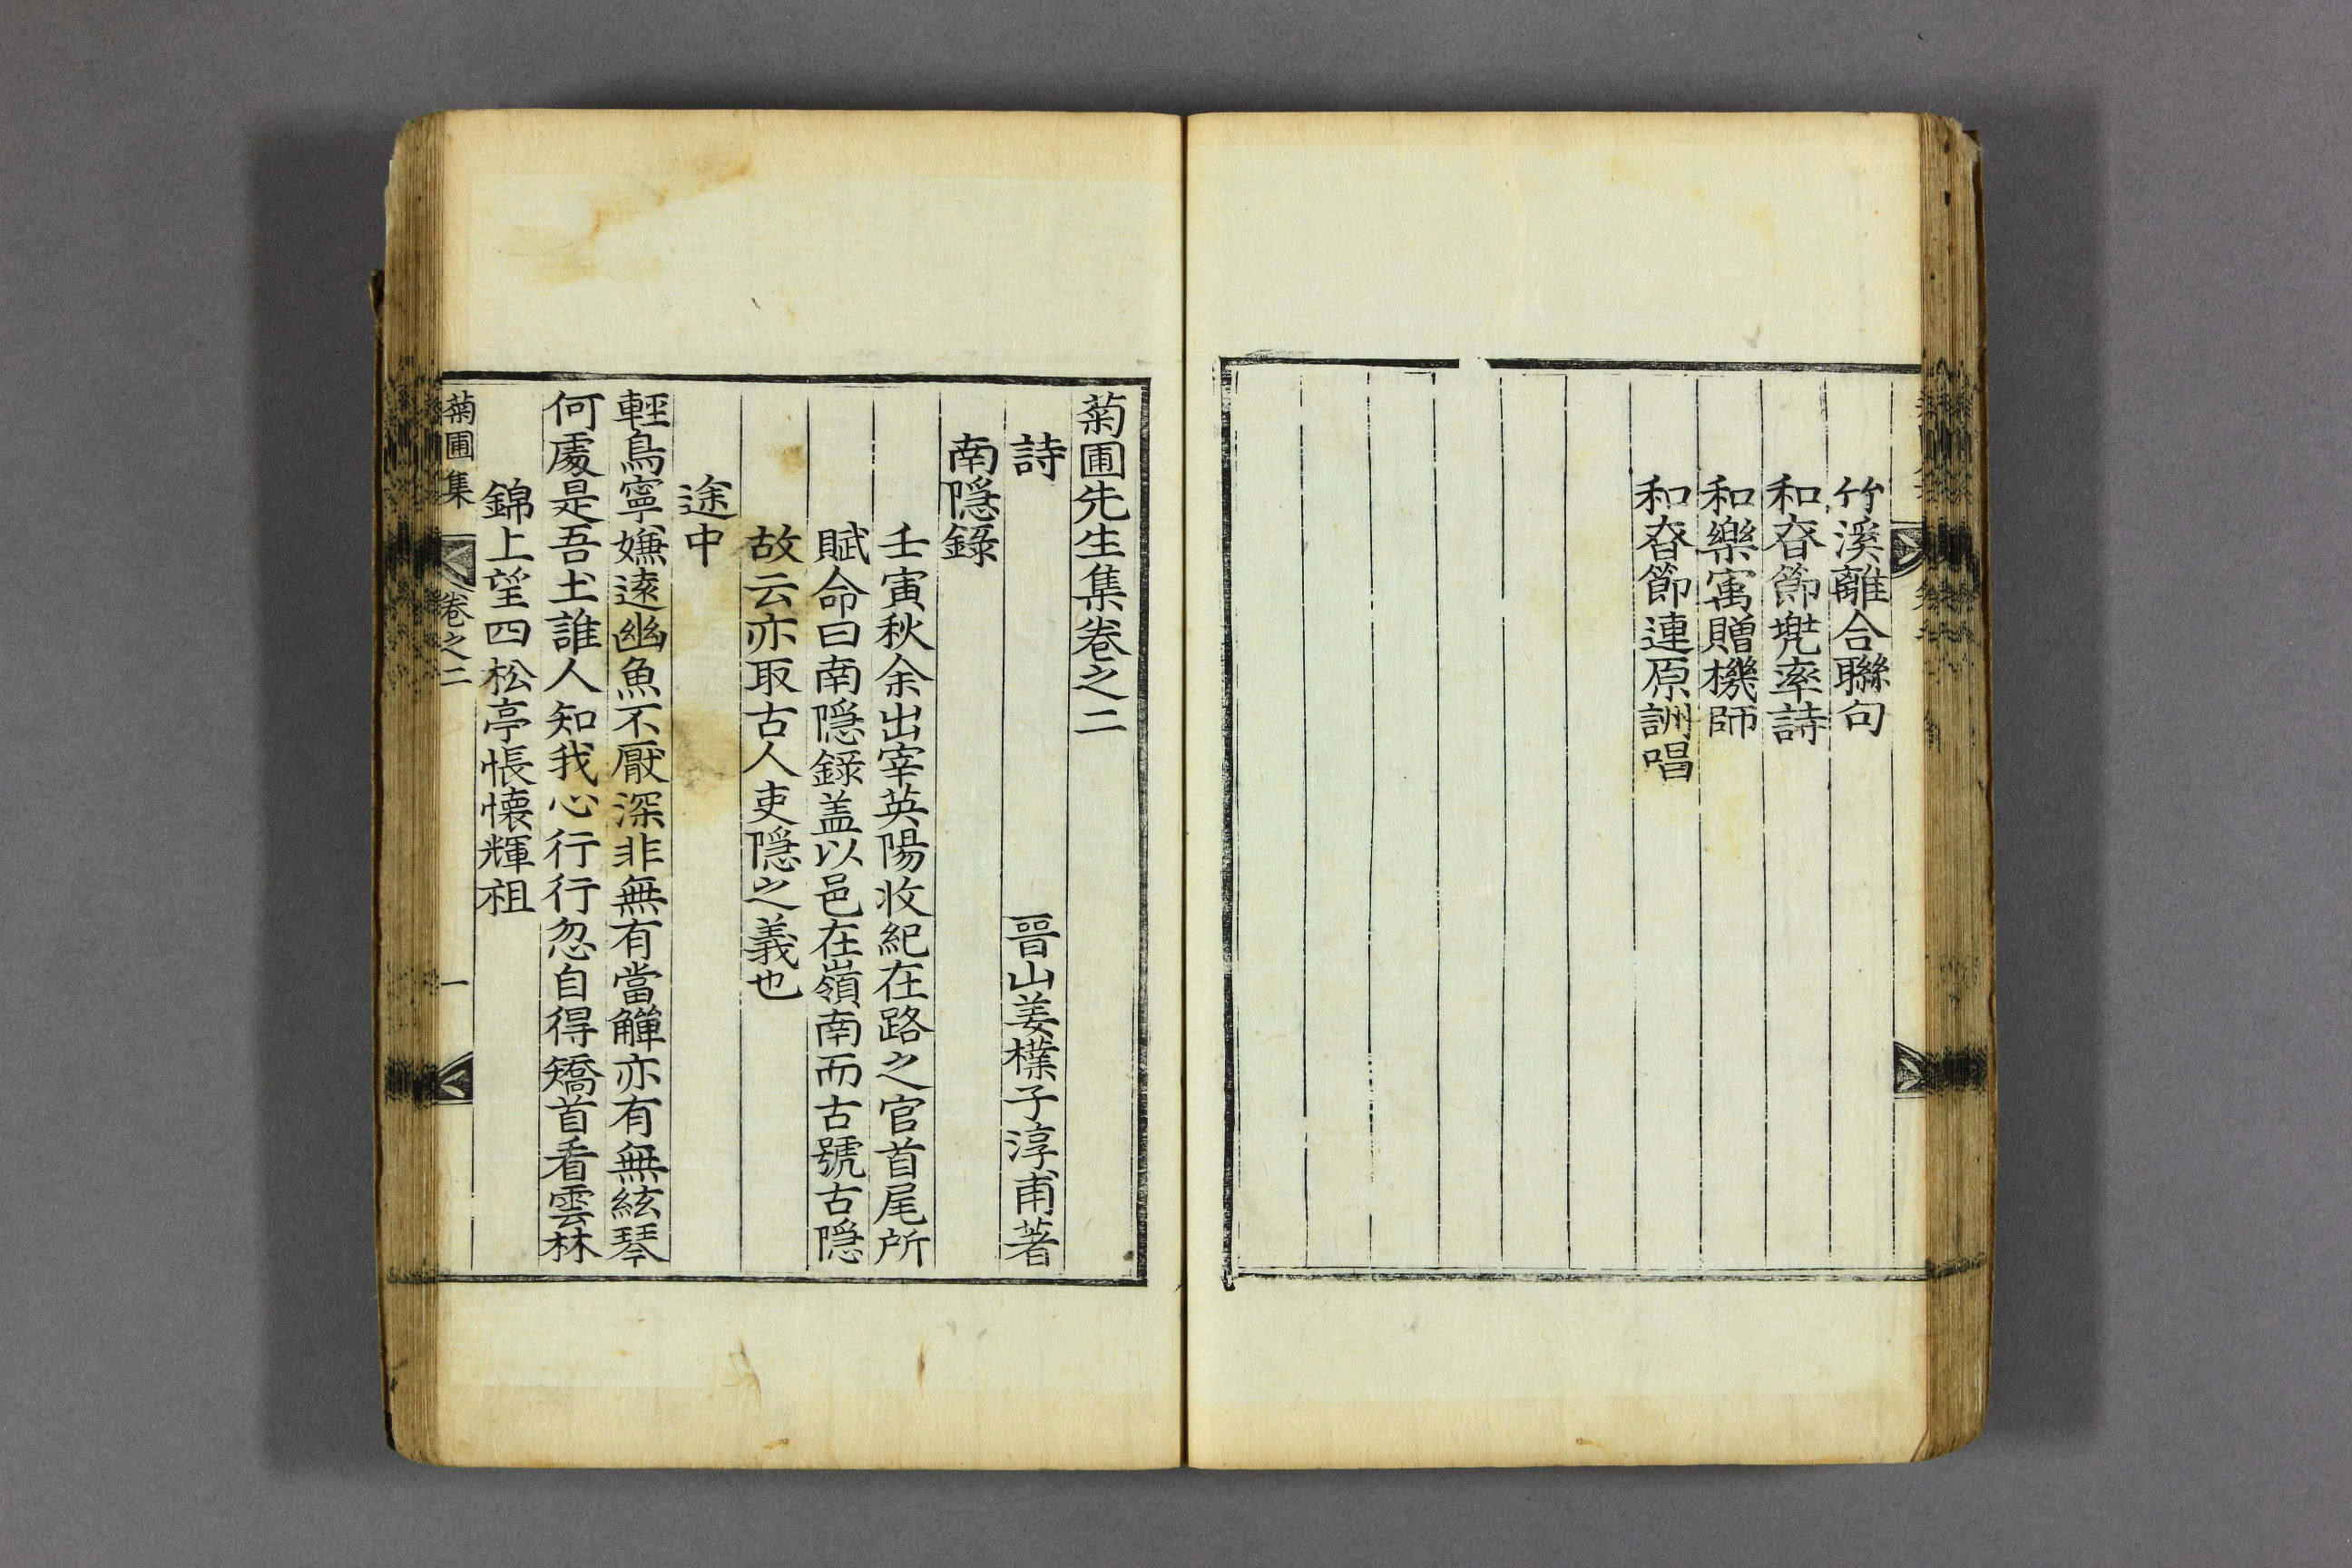 竹溪離合聯句
和昚節兠率詩
和樂寓贈機師
和昚節連原詶唱
菊圃先生集卷之二
詩
晉山姜樸子淳甫著
南隠錄
壬寅秋余出宰英陽收紀在路之官首尾所
賦命曰南隠錄盖以邑在嶺南而古號古隠
故云亦取古人吏隠之義也
途中
輕鳥寧嫌遠幽魚不厭深非無有當觶亦有無絃琴
何處是吾土誰人知我心行行忽自得矯首看雲林
錦上望四松亭悵懐輝祖
菊圃集
卷之二
一